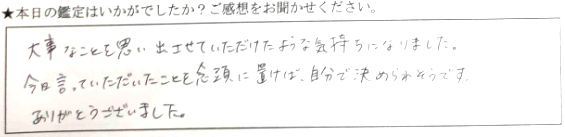 ★本日の鑑定はいかがでしたか？ご感想をお聞かせください。
大事なことを思い出させていただけたような気持ちになりました。
今日言っていただいたことを念頭に置けば、自分で決められそうです。
ありがとうございました。